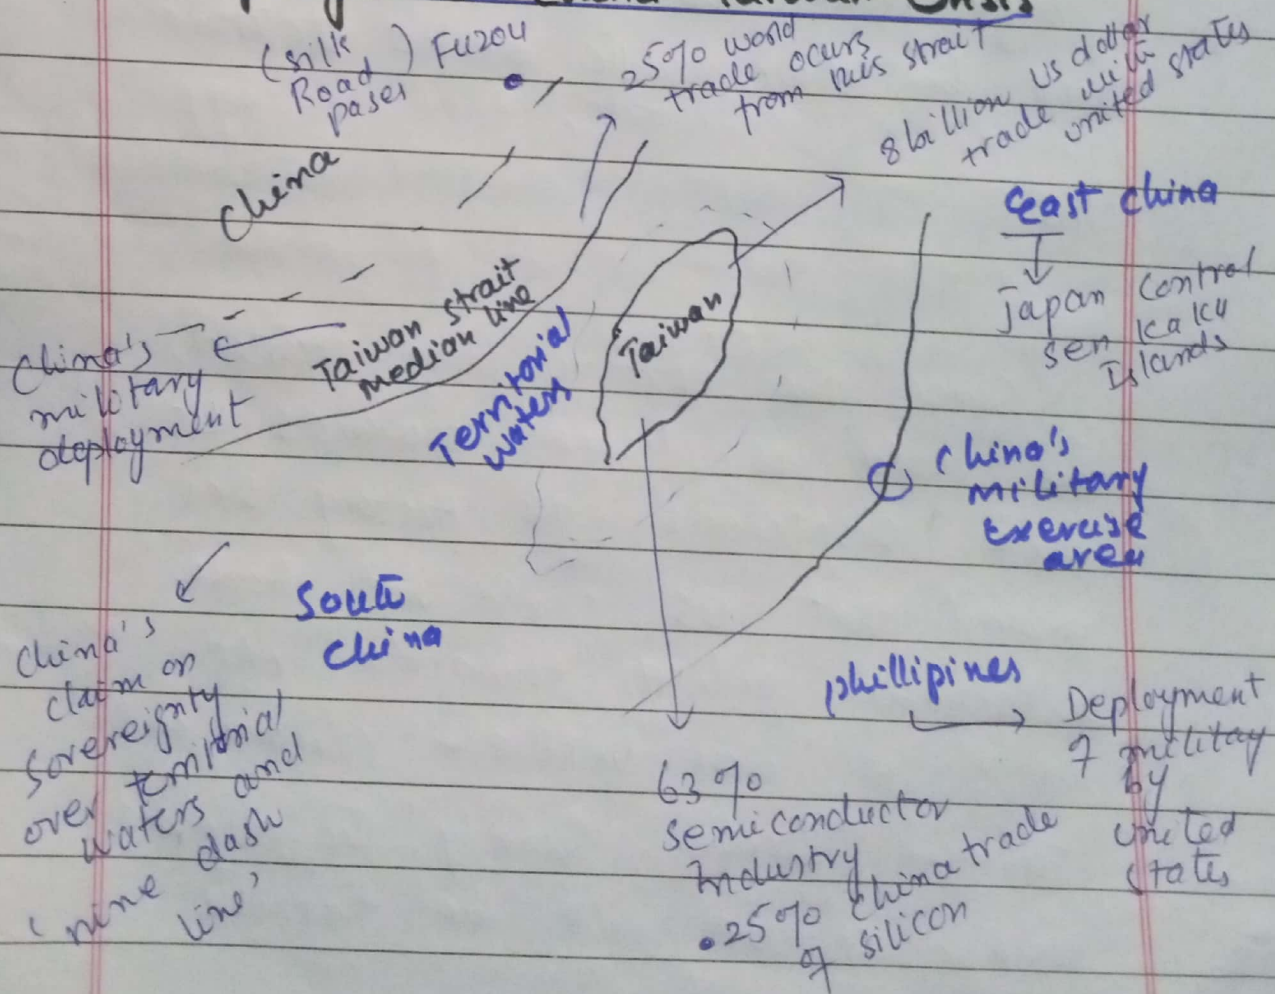 China Taiwan Crisis
(Silk
Road
pases)
Fuzou
25% world
trade ocurs
from this strait
8 billion us dollar
trade with
united states
China
East China
Japan control
sen kaku
Islands
Taiwan strait
median line
Territorial
waters
Taiwan
China's
military
deployment
China's
military
Exercise
area
South
China
China's
claim on
sovereignty
over territorial
waters and
'nine dash
line'
phillipines
Deployment
of military
by
united
states
63%
semiconductor
Industry
.25% china trade
of silicon